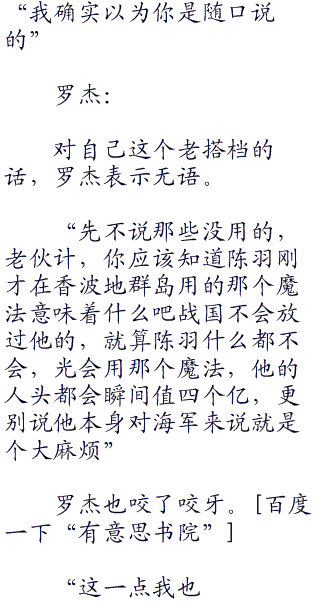 “我确实以为你是随口说
的”
罗杰：
对自己这个老搭档的
话，罗杰表示无语。
“先不说那些没用的，
老伙计，你应该知道陈羽刚
才在香波地群岛用的那个魔
法意味着什么吧战国不会放
过他的，就算陈羽什么都不
会，光会用那个魔法，他的
人头都会瞬间值四个亿，更
别说他本身对海军来说就是
个大麻烦”
罗杰也咬了咬牙。[百度
一下“有意思书院”]
“这一点我也